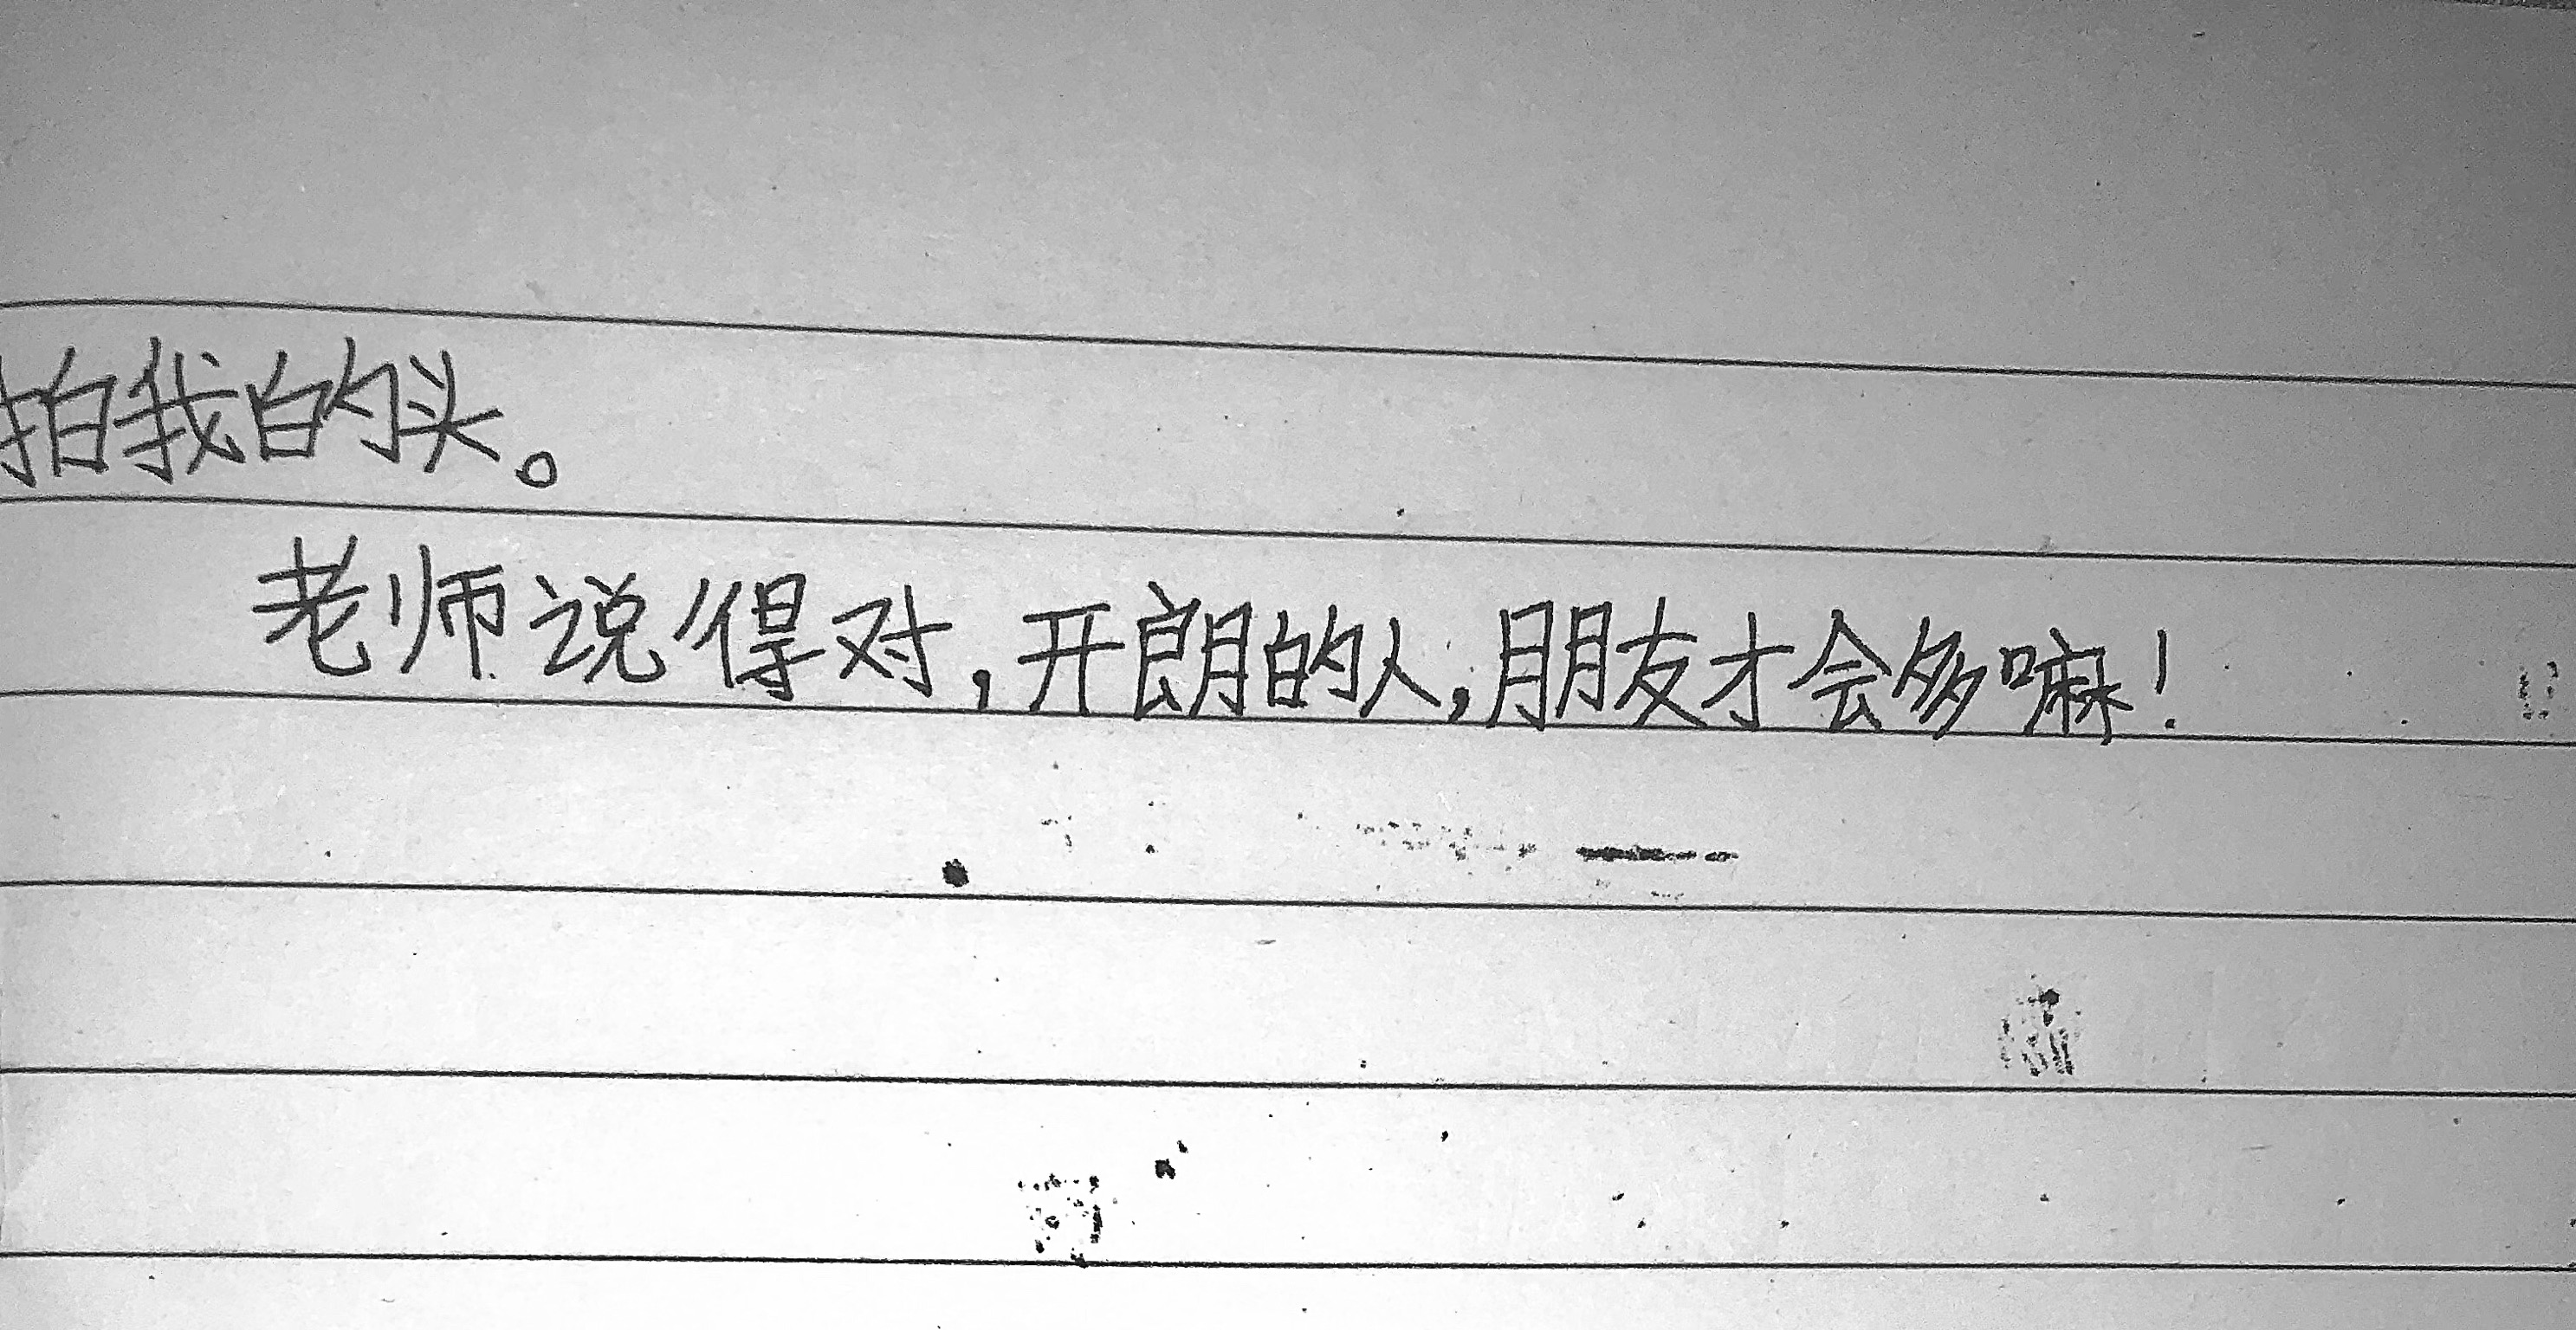 拍我的头。
老师说得对,开朗的人,朋友才会多嘛!